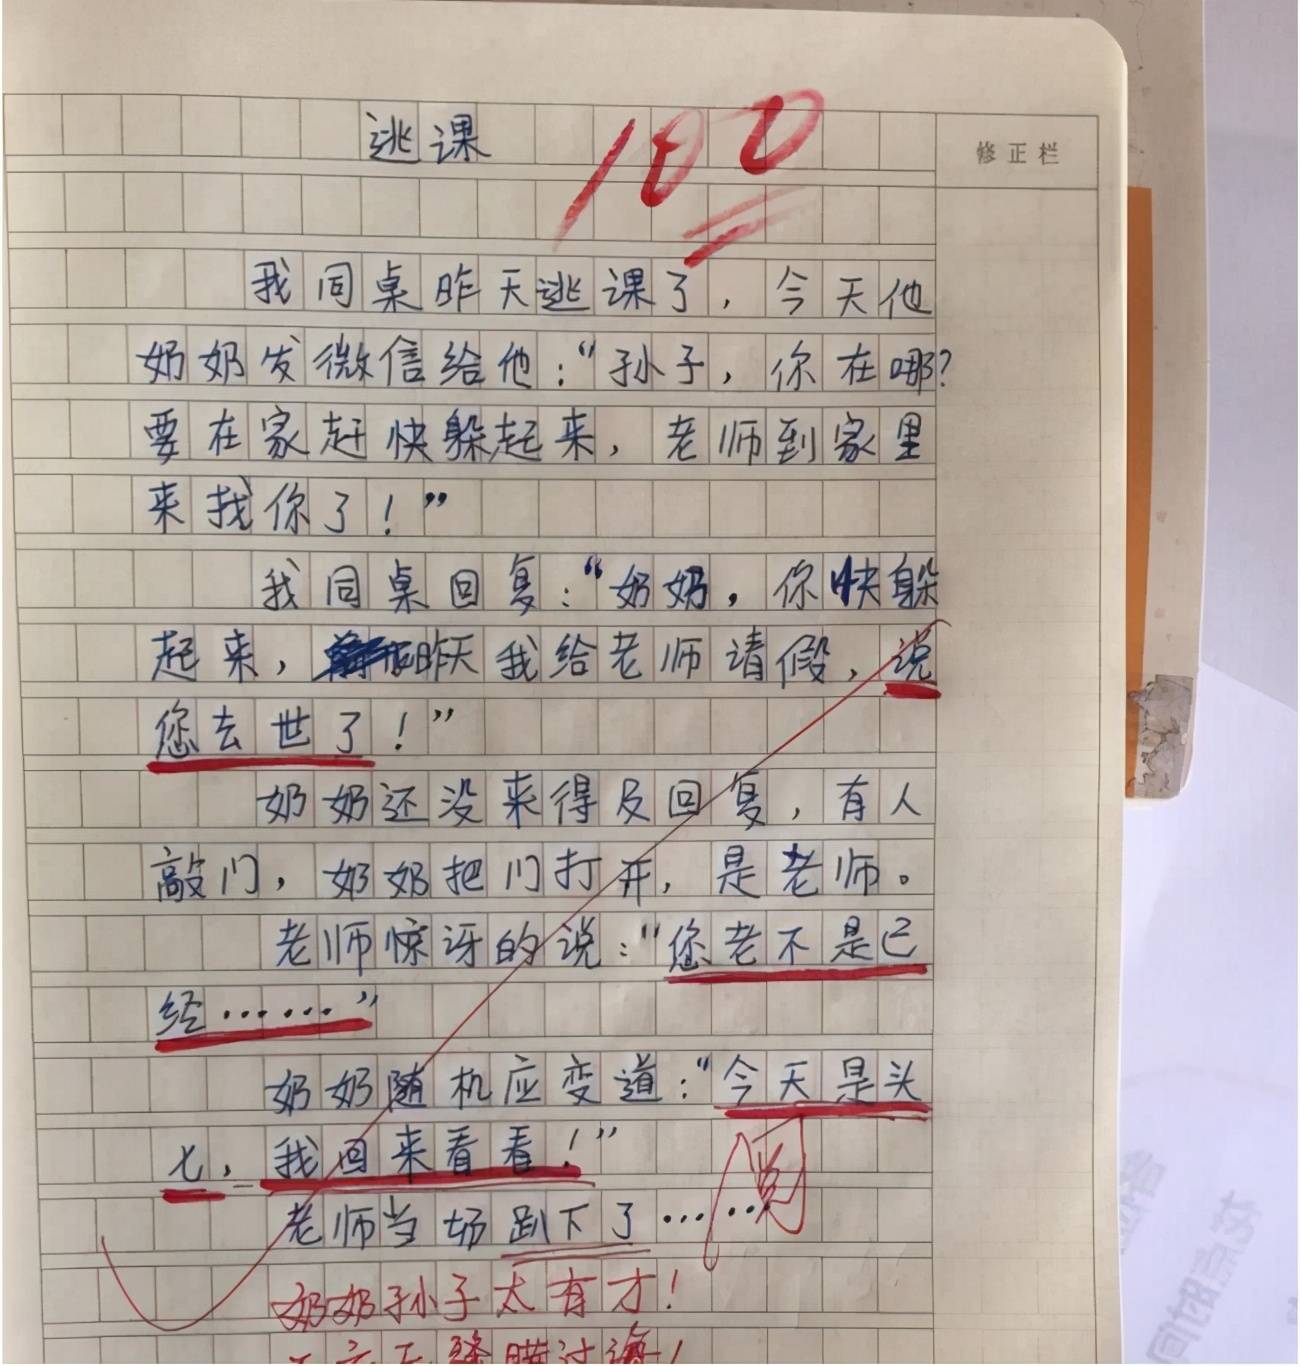 逃课
100
修正栏
我同桌昨天逃课了，今天他
奶奶发微信给他：“孙子，你在哪？
要在家赶快躲起来，老师到家里
来找你了！”
我同桌回复：“奶奶，你快躲
起来，昨天我给老师请假，说
您去世了！”
奶奶还没来得及回复，有人
敲门，奶奶把门打开，是老师。
老师惊讶的说：“您老不是已
经……”
奶奶随机应变道：“今天是头
七，我回来看看！”
老师当场趴下了……
阅
奶奶孙子太有才！
瞒过海！